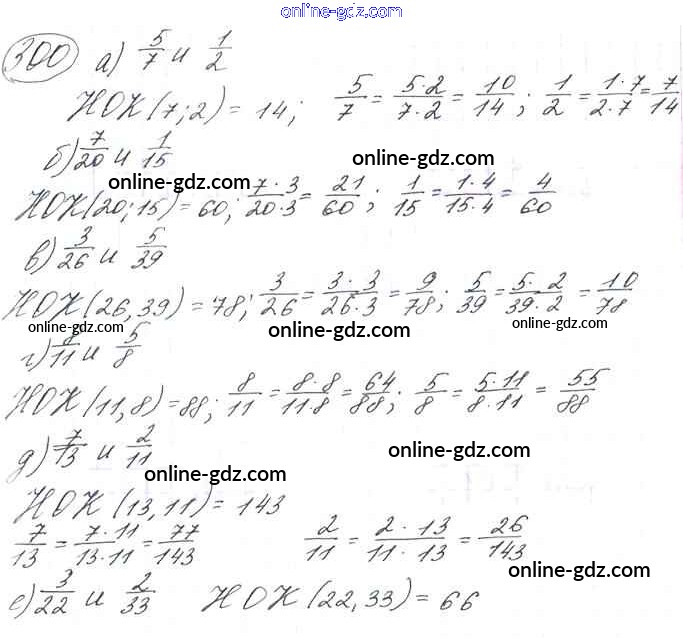 online-gdz.com
300 а) 5/7 и 1/2
НОК(7;2) = 14; 5/7 = 5·2/7·2 = 10/14; 1/2 = 1·7/2·7 = 7/14
б) 7/20 и 1/15
online-gdz.com
online-gdz.com
НОК(20;15) = 60; 7·3/20·3 = 21/60; 1/15 = 1·4/15·4 = 4/60
в) 3/26 и 5/39
online-gdz.com
НОК(26,39) = 78; 3/26 = 3·3/26·3 = 9/78; 5/39 = 5·2/39·2 = 10/78
online-gdz.com
online-gdz.com
online-gdz.com
г) 8/11 и 5/8
НОК(11,8) = 88; 8/11 = 8·8/11·8 = 64/88; 5/8 = 5·11/8·11 = 55/88
д) 7/13 и 2/11
online-gdz.com
online-gdz.com
НОК(13,11) = 143
7/13 = 7·11/13·11 = 77/143 2/11 = 2·13/11·13 = 26/143
online-gdz.com
е) 3/22 и 2/33 НОК(22,33) = 66
online-gdz.com